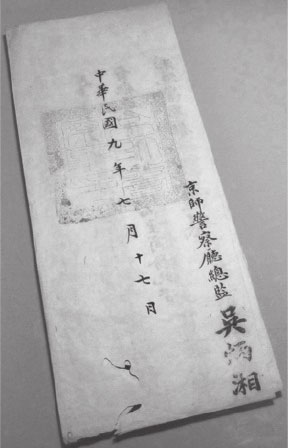 京師警察廳總監 吳炳湘
中華民國九年七月十七日